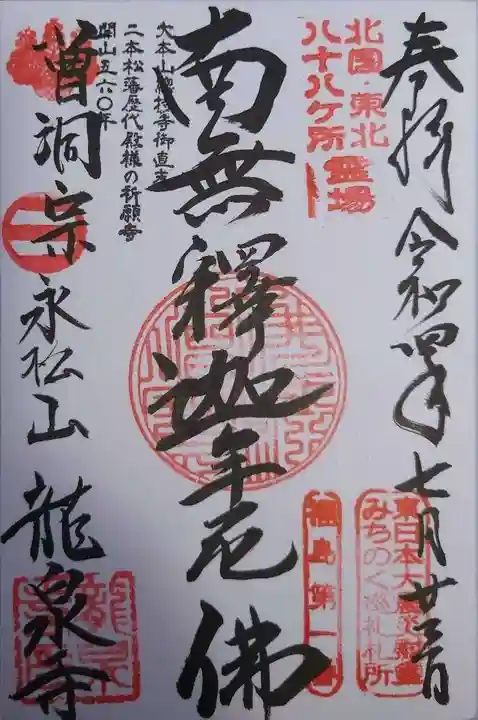 奉拝 令和四年七月廿一日
北国・東北
八十八ケ所霊場
東日本大震災慰霊
みちのく巡礼札所
福島第一
南無釋迦牟尼佛
大本山總持寺御直末
二本松藩歴代殿様の祈願寺
開山五六〇年
曹洞宗 永松山 龍泉寺